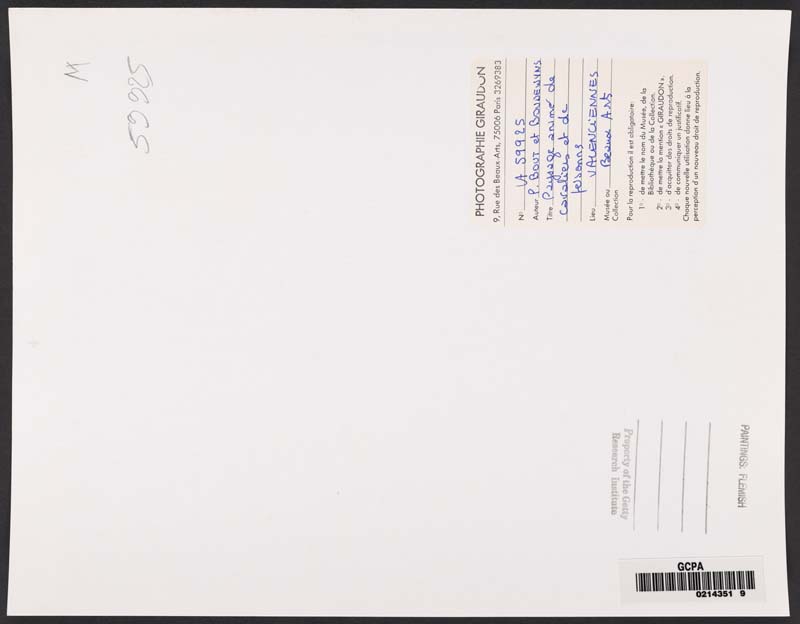 M
59925
PHOTOGRAPHIE GIRAUDON
9, Rue des Beaux-Arts, 75006 Paris 3269383
N° VA 59925
Auteur P. BOUT et BOUDEWYNS
Titre Paysage animé de
cavaliers et de
Lieu VALENCIENNES
Musée ou Beaux Arts
Collection
Pour la reproduction il est obligatoire:
1° - de mettre le nom du Musée, de la
Bibliothèque ou de la Collection.
2° - de mettre la mention « GIRAUDON ».
3° - d'acquitter des droits de reproduction.
4° - de communiquer un justificatif.
Chaque nouvelle utilisation donne lieu à la
perception d'un nouveau droit de reproduction.
Property of the Getty
Research Institute
PAINTINGS, FLEMISH
GCPA
0214351 9